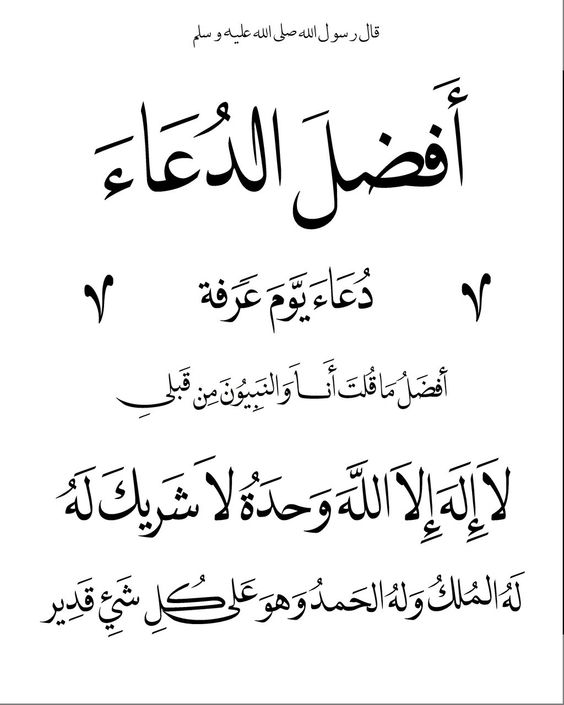 قال رسول الله صلى الله عليه وسلم
أَفضلَ الدُعَاءَ
دُعَاءَ يَوَّمَ عَرَفة
أَفضَلُ مَا قُلتَ أَنَاَ وَالنَبِيُونَ مِن قَبلِي
لاَ إِلَهَ إِلاَ اللَّهَ وَحدَةُ لاَ شَريكَ لَهُ
لَهُ المُلكُ وَلهُ الحَمدُ وَهوَ عَلى كُلِ شَيِّ قَدِير